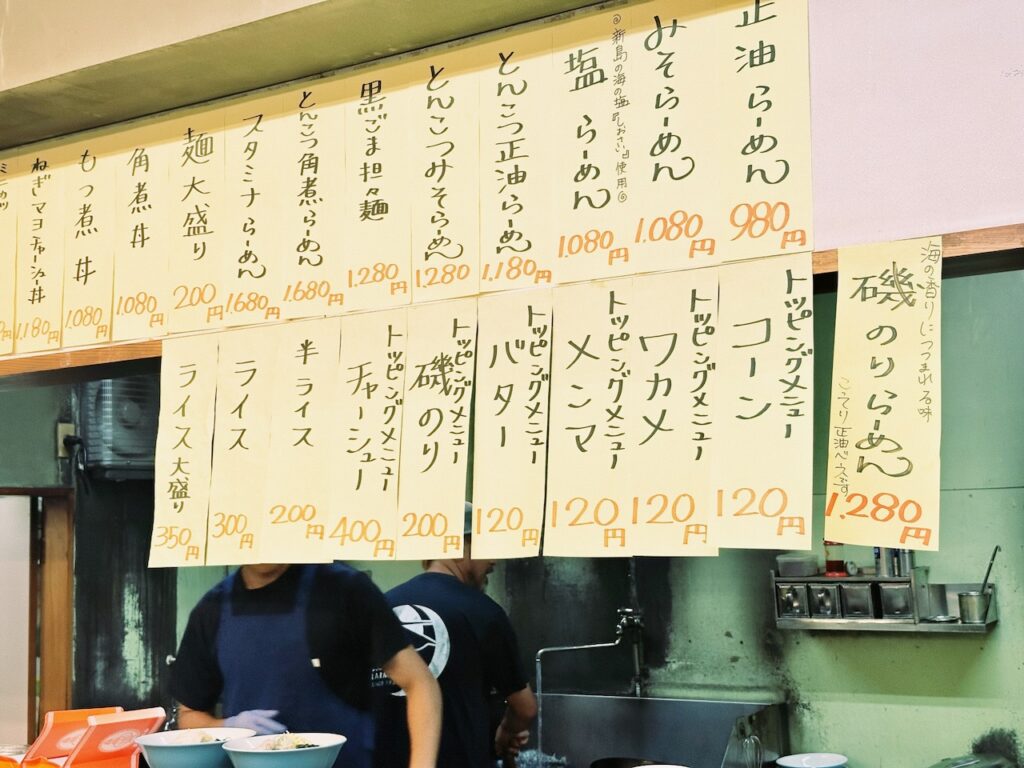 正油らーめん
980円
みそらーめん
1.080円
◎新島の海の塩『しおさい』使用◎
塩らーめん
1.080円
とんこつ正油らーめん
1.180円
とんこつみそらーめん
1.280円
黒ごま担々麺
1.280円
とんこつ角煮らーめん
1.680円
スタミナらーめん
1.680円
麺大盛り
200円
角煮丼
1.080円
もつ煮丼
1.080円
ねぎマヨチャーシュー丼
1.180円
海の香りにつつまれる味
磯のりらーめん
こってり正油ベースです
1.280円
トッピングメニュー
コーン
120円
トッピングメニュー
ワカメ
120円
トッピングメニュー
メンマ
120円
トッピングメニュー
バター
120円
トッピングメニュー
磯のり
200円
トッピングメニュー
チャーシュー
400円
半ライス
200円
ライス
300円
ライス大盛り
350円